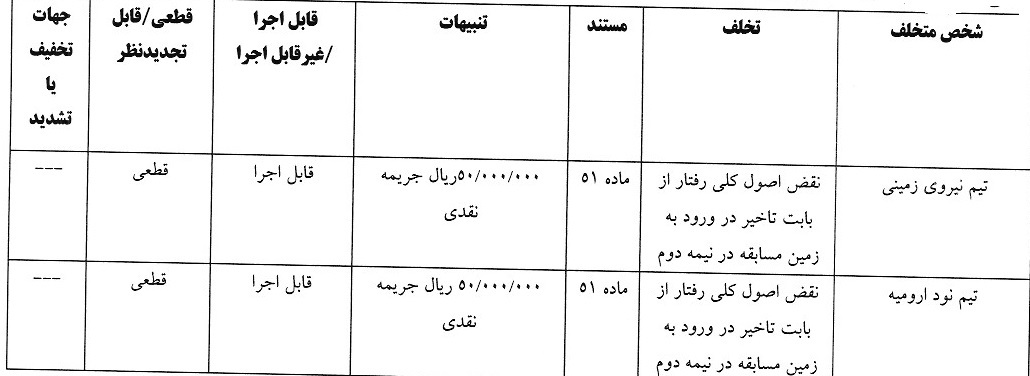 شخص متخلف
تخلف
مستند
تنبیهات
قابل اجرا
/غیرقابل اجرا
قطعی/قابل
تجدیدنظر
جهات
تخفیف
یا
تشدید
تیم نیروی زمینی
نقض اصول کلی رفتار از
بابت تاخیر در ورود به
زمین مسابقه در نیمه دوم
ماده ۵۱
۵۰/۰۰۰/۰۰۰ریال جریمه
نقدی
قابل اجرا
قطعی
---
تیم نود ارومیه
نقض اصول کلی رفتار از
بابت تاخیر در ورود به
زمین مسابقه در نیمه دوم
ماده ۵۱
۵۰/۰۰۰/۰۰۰ ریال جریمه
نقدی
قابل اجرا
قطعی
---